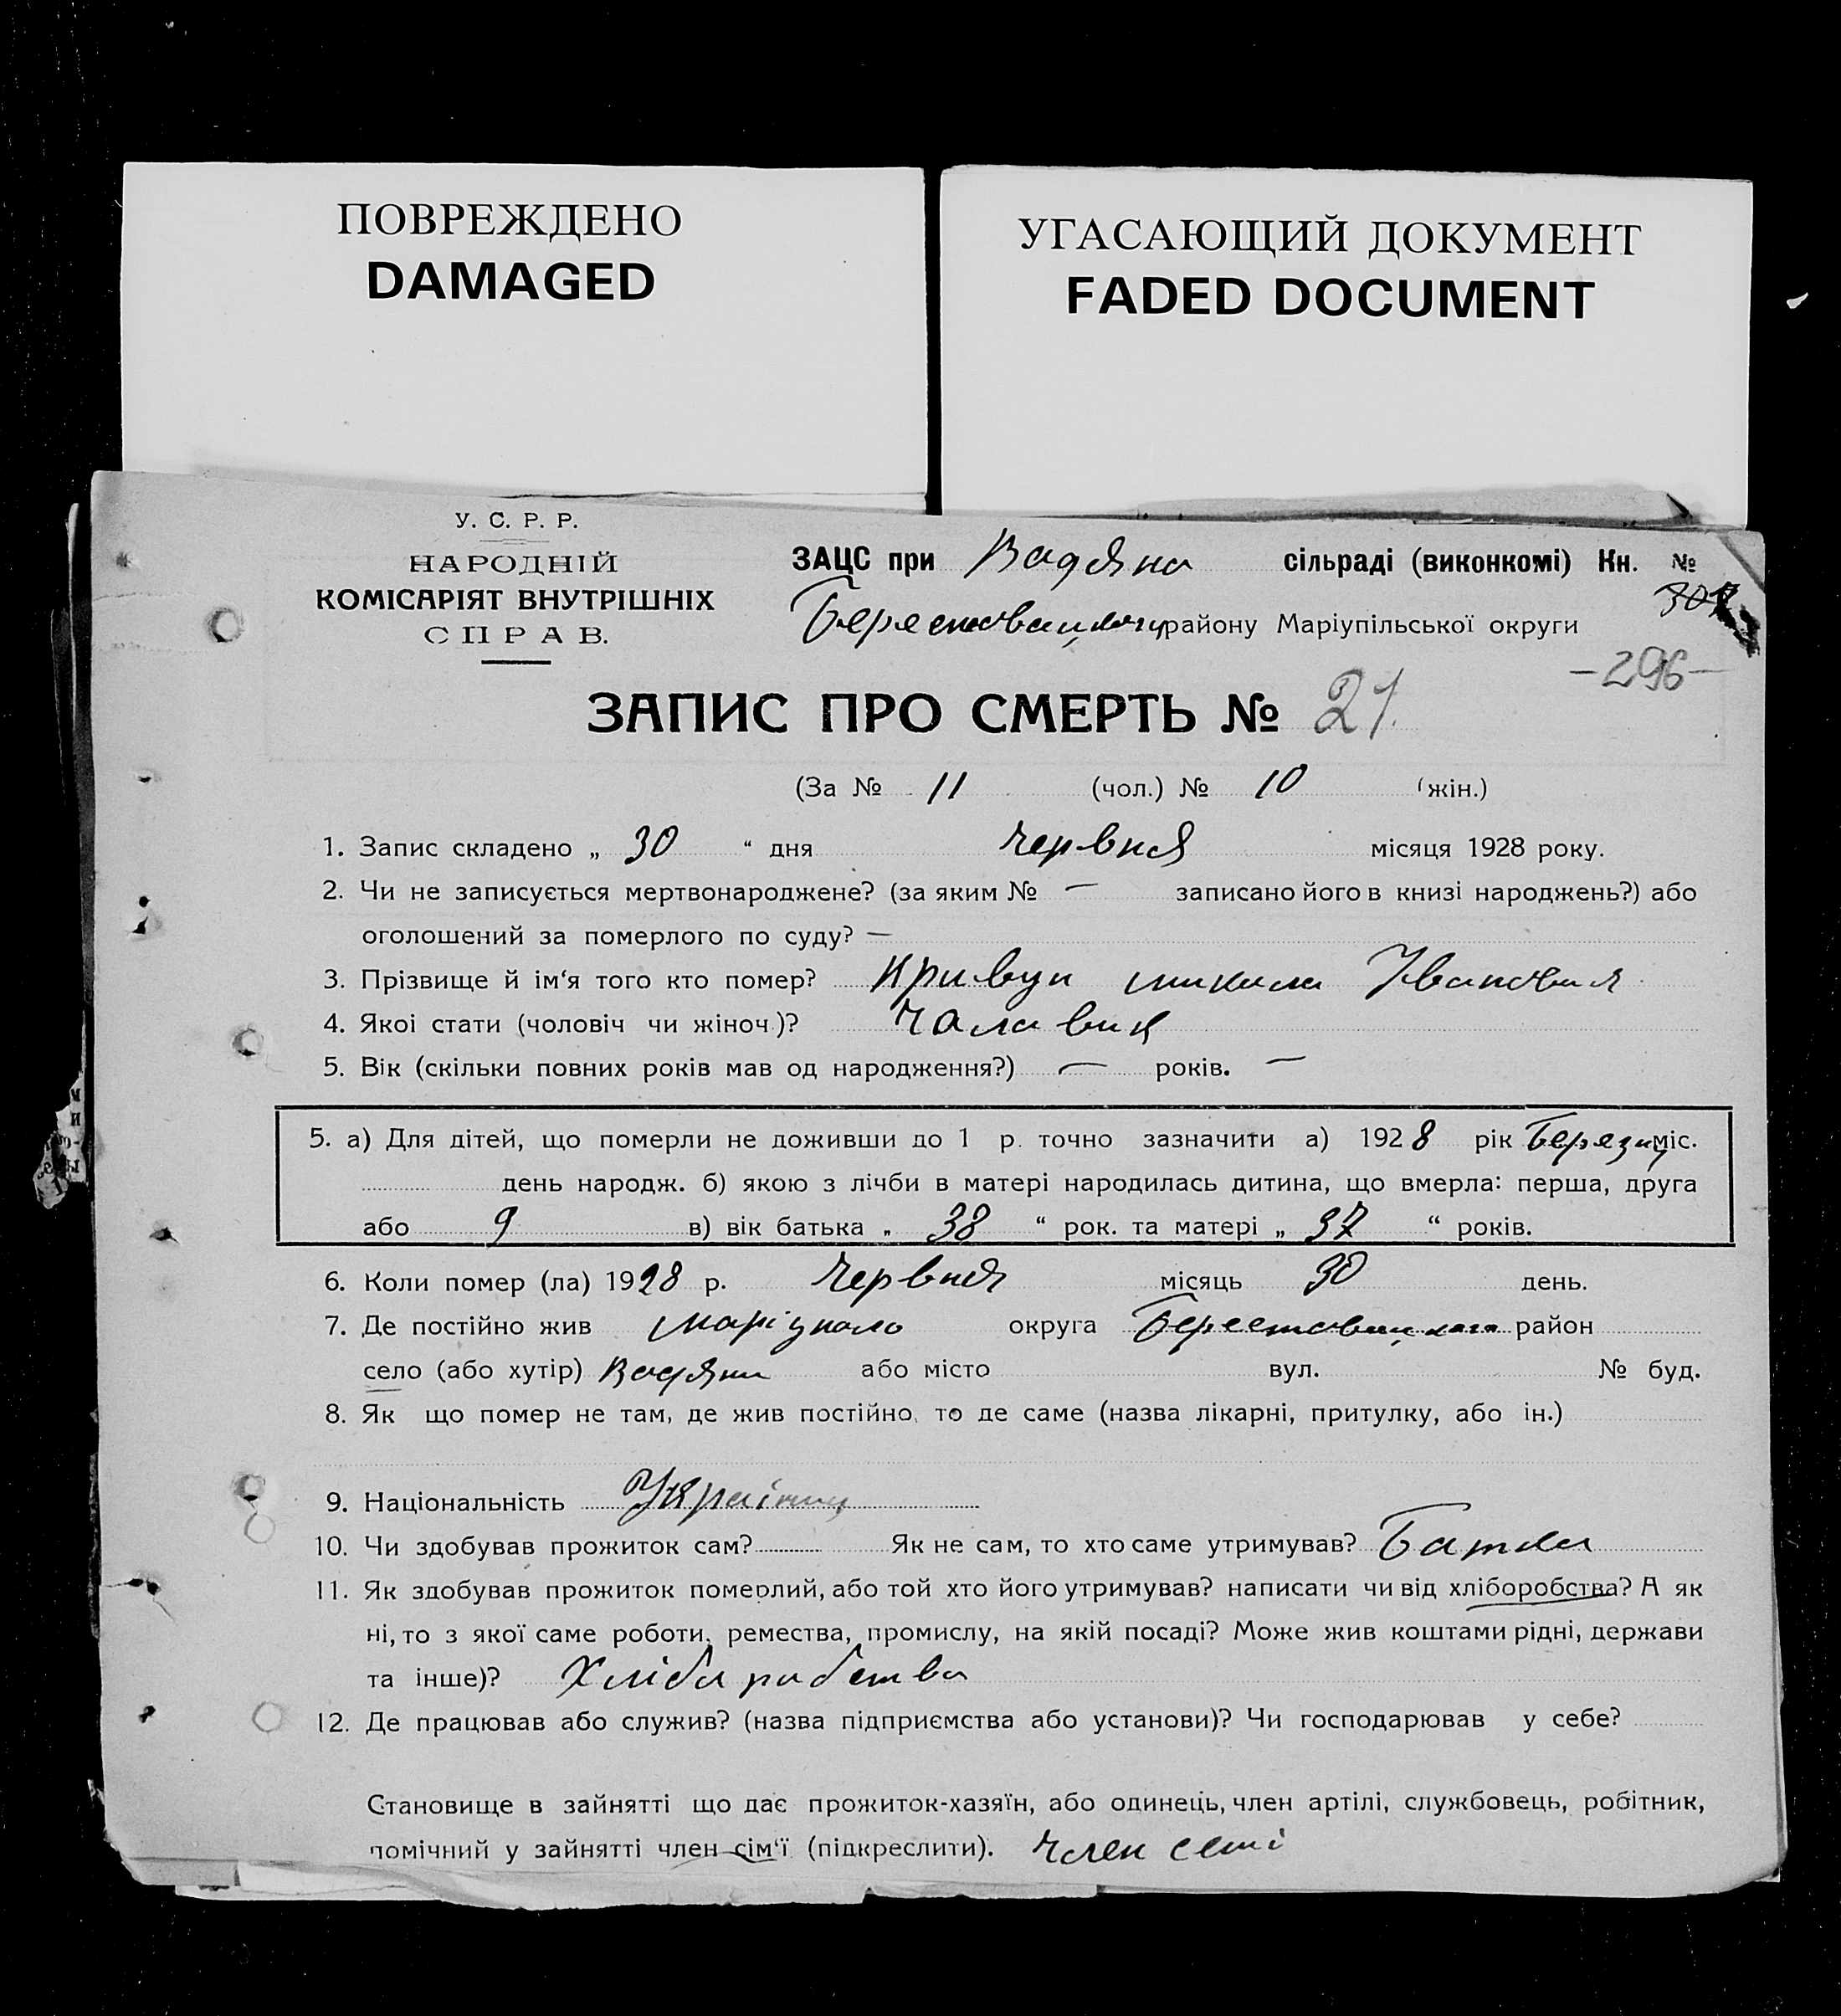 ПОВРЕЖДЕНО
DAMAGED
УГАСАЮЩИЙ ДОКУМЕНТ
FADED DOCUMENT
У. С. Р. Р.
НАРОДНІЙ
КОМІСАРІЯТ ВНУТРІШНІХ
СПРАВ.
ЗАЦС при Вадяна сільраді (виконкомі) Кн. №
району Маріупільської округи
-296-
ЗАПИС ПРО СМЕРТЬ № 21.
(За № 11 (чол.) № 10 (жін.)
1. Запис складено „ 30 “ дня червня місяця 1928 року.
2. Чи не записується мертвонароджене? (за яким № — записано його в книзі народжень?) або
оголошений за померлого по суду? —
3. Прізвище й ім‘я того кто помер? Кривун микола Іванович
4. Якоі стати (чоловіч чи жіноч.)? Чалавик
5. Вік (скільки повних років мав од народження?) — років. —
5. а) Для дітей, що померли не доживши до 1 р. точно зазначити а) 1928 рік міс.
день народж. б) якою з лічби в матері народилась дитина, що вмерла: перша, друга
або 9 в) вік батька „ 38 “ рок. та матері „ 37 “ років.
6. Коли помер (ла) 1928 р. червня місяць 30 день.
7. Де постійно жив маріуполо округа Берестовицкого район
село (або хутір) Вадяна або місто вул. № буд.
8. Як що помер не там, де жив постійно, то де саме (назва лікарні, притулку, або ін.)
9. Національність Украінец
10. Чи здобував прожиток сам? Як не сам, то хто саме утримував? Батко
11. Як здобував прожиток померлий, або той хто його утримував? написати чи від хліборобства? А як
ні, то з якої саме роботи, ремества, промислу, на якій посаді? Може жив коштами рідні, держави
та інше)? Хлібаработва
12. Де працював або служив? (назва підприємства або установи)? Чи господарював у себе?
Становище в зайнятті що дає прожиток-хазяїн, або одинець, член артілі, службовець, робітник,
помічний у зайнятті член сім‘ї (підкреслити). член семі